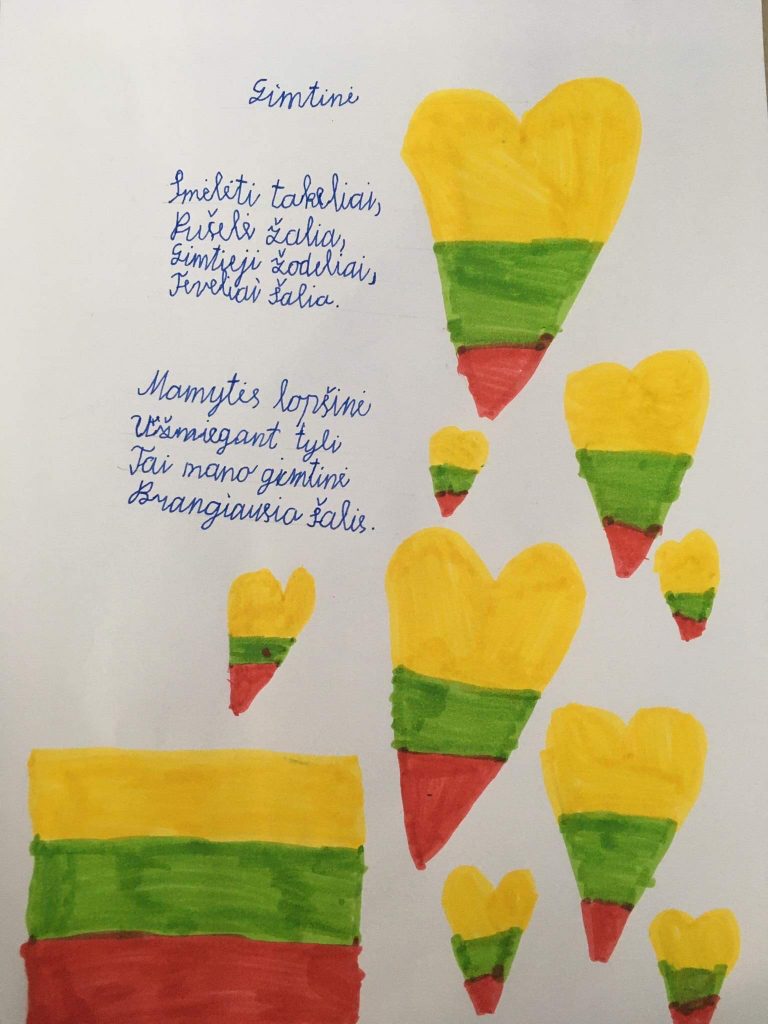 Gimtinė
Smėlėti takeliai,
Pušelė žalia,
Gimtieji žodeliai,
Teveliai šalia.
Mamytės lopšinė
Užmiegant tyli
Tai mano gimtinė
Brangiausia šalis.